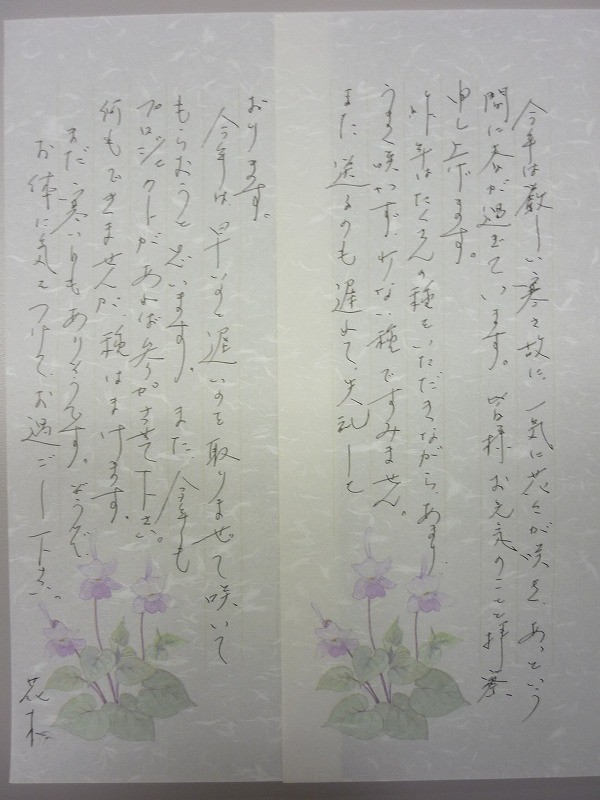 今年は厳しい寒さ故に、一気に花々が咲き、あっという
間に春が過ぎています。皆様お元気のことと拝察
申し上げます。
昨年はたくさんの種をいただきながら、あまり
うまく咲かず、少ない種ですみません。
また、送るのも遅れて、失礼して
おります。
今年は、早いのと遅いのを取りまぜて咲いて
もらおうと思います。また、今年も
プロジェクトがあれば参加させて下さい。
何もできませんが、種はまけます。
まだ寒い日もありそうです。どうぞ、
お体に気をつけてお過ごし下さい。
花